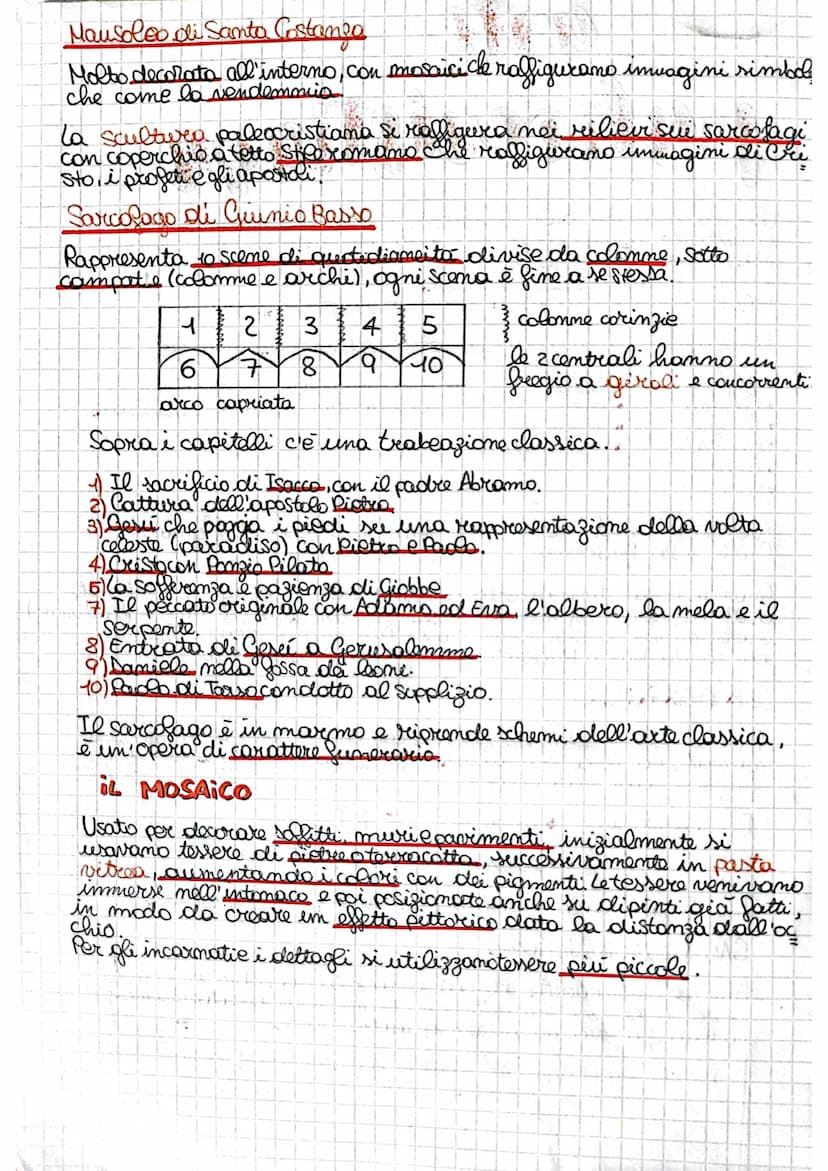 Mausoleo di Santa Costanza
Molto decorata all'interno, con mosaici che raffigurano immagini simboli
che come la vendemmia
La scultura paleocristiana si raffigura nei rilievi sui sarcofagi
con coperchio a tetto stile romano che raffigurano immagini di Cri
sto, i profeti e gli apostoli.
Sarcofago di Giunio Basso
Rappresenta 10 scene di quotidianeità divise da colonne, sotto
campate (colonne e archi), ogni scena è fine a se stessa.
1 2 3 4 5
6 7 8 9 10
} colonne corinzie
le 2 centrali hanno un
fregio a girali e concorrenti
arco capriata
Sopra i capitelli c'è una trabeazione classica.
1) Il sacrificio di Isacco, con il padre Abramo.
2) Cattura dell'apostolo Pietro
3) Gesù che poggia i piedi su una rappresentazione della volta
celeste (paradiso) con Pietro e Paolo.
4) Cristo con Ponzio Pilato
5) La sofferenza e pazienza di Giobbe
7) Il peccato originale con Adamo ed Eva, l'albero, la mela e il
serpente.
8) Entrata di Gesù a Gerusalemme
9) Daniele nella fossa dei leoni.
10) Paolo di Tarso condotto al supplizio.
Il sarcofago è in marmo e riprende schemi dell'arte classica,
è un'opera di carattere funerario.
IL MOSAICO
Usato per decorare soffitti, muri e pavimenti, inizialmente si
usavano tessere di pietre o terracotta, successivamente in pasta
vitrea, aumentando i colori con dei pigmenti. Le tessere venivano
immerse nell'intonaco e poi posizionate anche su dipinti già fatti,
in modo da creare un effetto pittorico dato la distanza dall'oc
chio.
Per gli incarnati e i dettagli si utilizzano tessere più piccole.